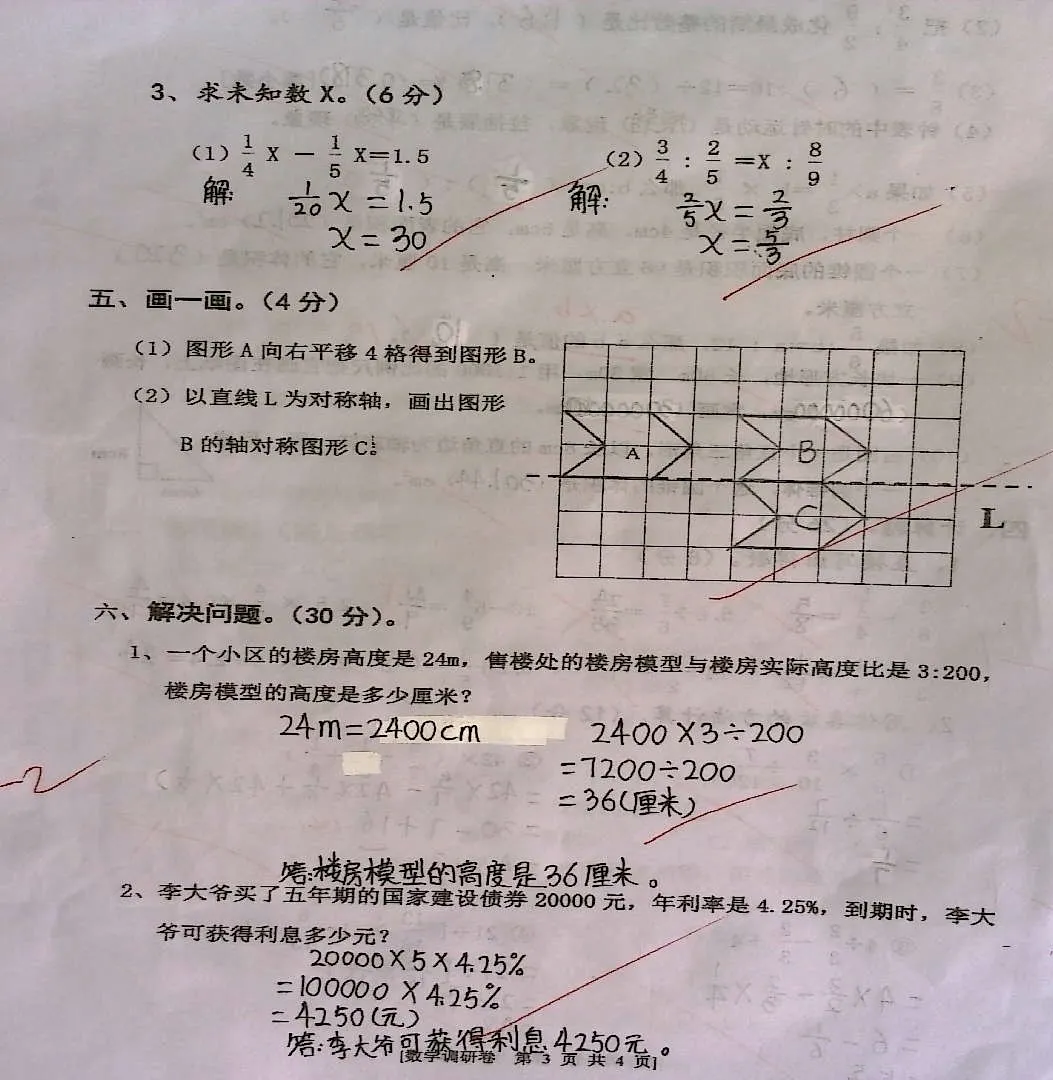 3、求未知数 X。(6 分)
(1) 1/4 X － 1/5 X=1.5 (2) 3/4 : 2/5 =X : 8/9
解: 1/20 x = 1.5 解: 2/5 x = 2/3
x = 30 x = 5/3
五、画一画。(4 分)
(1) 图形 A 向右平移 4 格得到图形 B。
(2) 以直线 L 为对称轴，画出图形
B 的轴对称图形 C。
A B
C
L
六、解决问题。(30 分)。
1、一个小区的楼房高度是 24m，售楼处的楼房模型与楼房实际高度比是 3:200，
楼房模型的高度是多少厘米?
24m=2400cm 2400×3÷200
=7200÷200
=36(厘米)
-2
答:楼房模型的高度是36厘米。
2、李大爷买了五年期的国家建设债券 20000 元，年利率是 4.25%，到期时，李大
爷可获得利息多少元?
20000×5×4.25%
=100000×4.25%
=4250(元)
答:李大爷可获得利息4250元。
[数学调研卷 第 3 页 共 4 页]